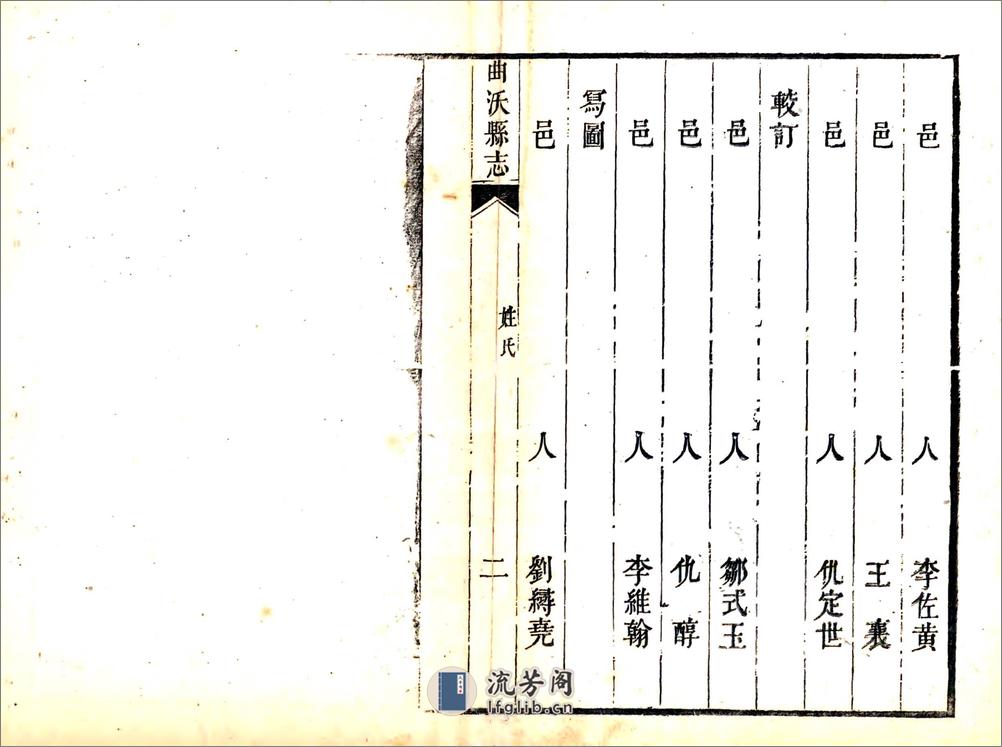 邑 人 李佐黄
邑 人 王 襄
邑 人 仇定世
較訂
邑 人 鄒式玉
邑 人 仇 醇
邑 人 李維翰
寫圖
邑 人 劉縛堯
曲沃縣志 姓氏 二
流芳阁
lfglib.cn